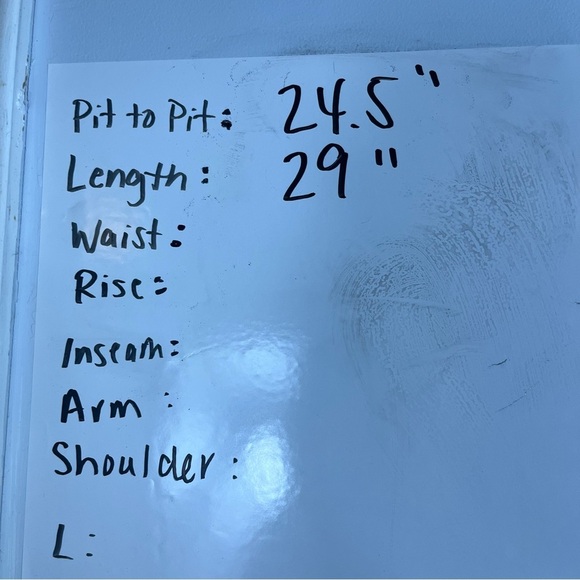 Pit to Pit: 24.5"
Length: 29"
Waist:
Rise:
Inseam:
Arm :
Shoulder :
L: